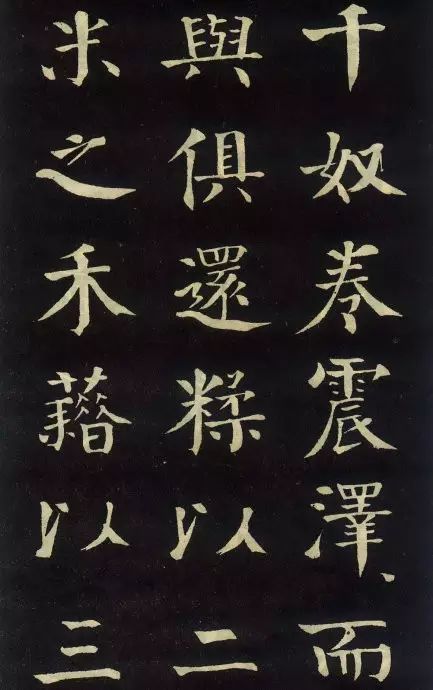 千奴卷震澤而
與俱還糅以二
米之禾藉以三